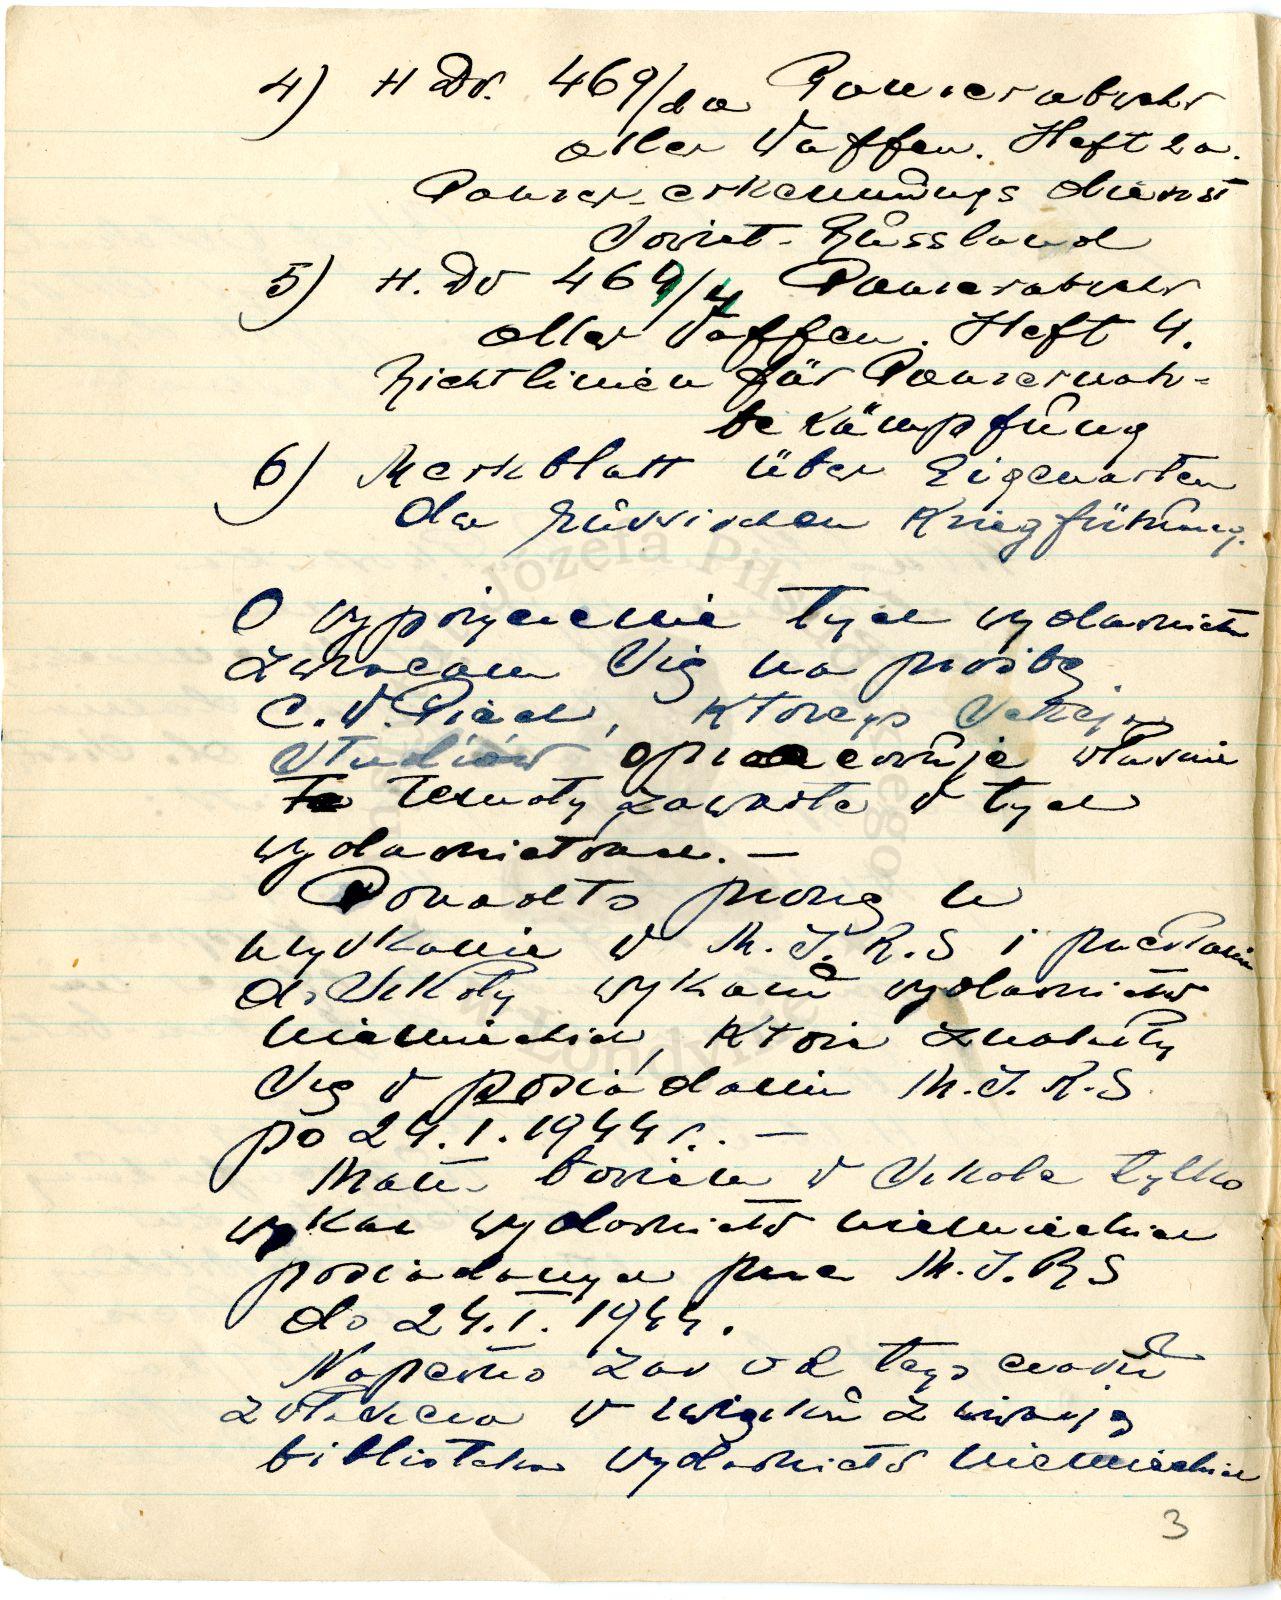 4) H Dv. 469/2a Panzerabwehr
aller Waffen. Heft 2a.
Panzer-erkennungs dienst
Sowiet-Russland
5) H. Dv 469/4 Panzerabwehr
aller Waffen. Heft 4.
Richtlinien für Panzernah-
bekämpfung
6) Merkblatt über Eigenarten
der russischen Kriegführung.
O wypożyczenie tych wydawnictw
zwracam się na prośbę
C.W.Piech, którego Sekcja
Studiów opracowuje właśnie
tematy zawarte w tych
wydawnictwach. —
Ponadto proszę o
uzyskanie w M.I.R.S i przesłanie
do Szkoły wykazu wydawnictw
niemieckich, które znalazły
się w posiadaniu M.I.R.S
po 24.I.1944 r. —
Mam bowiem w Szkole tylko
wykaz wydawnictw niemieckich
posiadanych przez M.I.RS
do 24.I.1944.
Napewno zaś od tego czasu
zwłaszcza w związku z inwazją
biblioteka wydawnictw niemieckich
3
Józefa Piłsudskiego